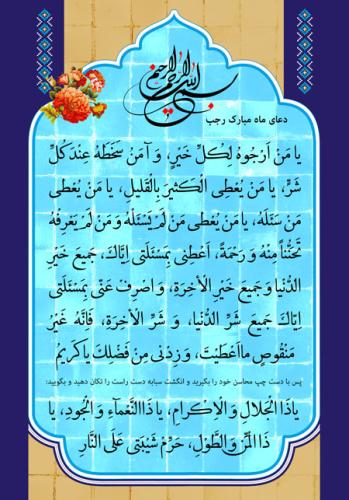 بسم الله الرحمن الرحیم
دعای ماه مبارک رجب
یا مَنْ اَرْجُوهُ لِکُلِّ خَیْرٍ، وَ آمَنُ سَخَطَهُ عِنْدَ کُلِّ
شَرٍّ، یا مَنْ یُعْطِی الْکَثیرَ بِالْقَلیلِ، یا مَنْ یُعْطی
مَنْ سَئَلَهُ، یا مَنْ یُعْطی مَنْ لَمْ یَسْئَلْهُ وَ مَنْ لَمْ یَعْرِفْهُ
تَحَنُّناً مِنْهُ وَ رَحْمَةً، اَعْطِنی بِمَسْئَلَتی اِیّاکَ، جَمیعَ خَیْرِ
الدُّنْیا وَ جَمیعَ خَیْرِ الْاخِرَةِ، وَ اصْرِفْ عَنّی بِمَسْئَلَتی
اِیّاکَ جَمیعَ شَرِّ الدُّنْیا، وَ شَرِّ الْاخِرَةِ، فَاِنَّهُ غَیْرُ
مَنْقُوصٍ ما اَعْطَیْتَ، وَ زِدْنی مِنْ فَضْلِکَ یا کَریمُ
پس با دست چپ محاسن خود را بگیرید و انگشت سبابه دست راست را تکان دهید و بگویید:
یا ذَا الْجَلالِ وَ الْاِکْرامِ، یا ذَا النَّعْماءِ وَ الْجُودِ، یا
ذَا الْمَنِّ وَ الطَّوْلِ، حَرِّمْ شَیْبَتی عَلَی النّارِ